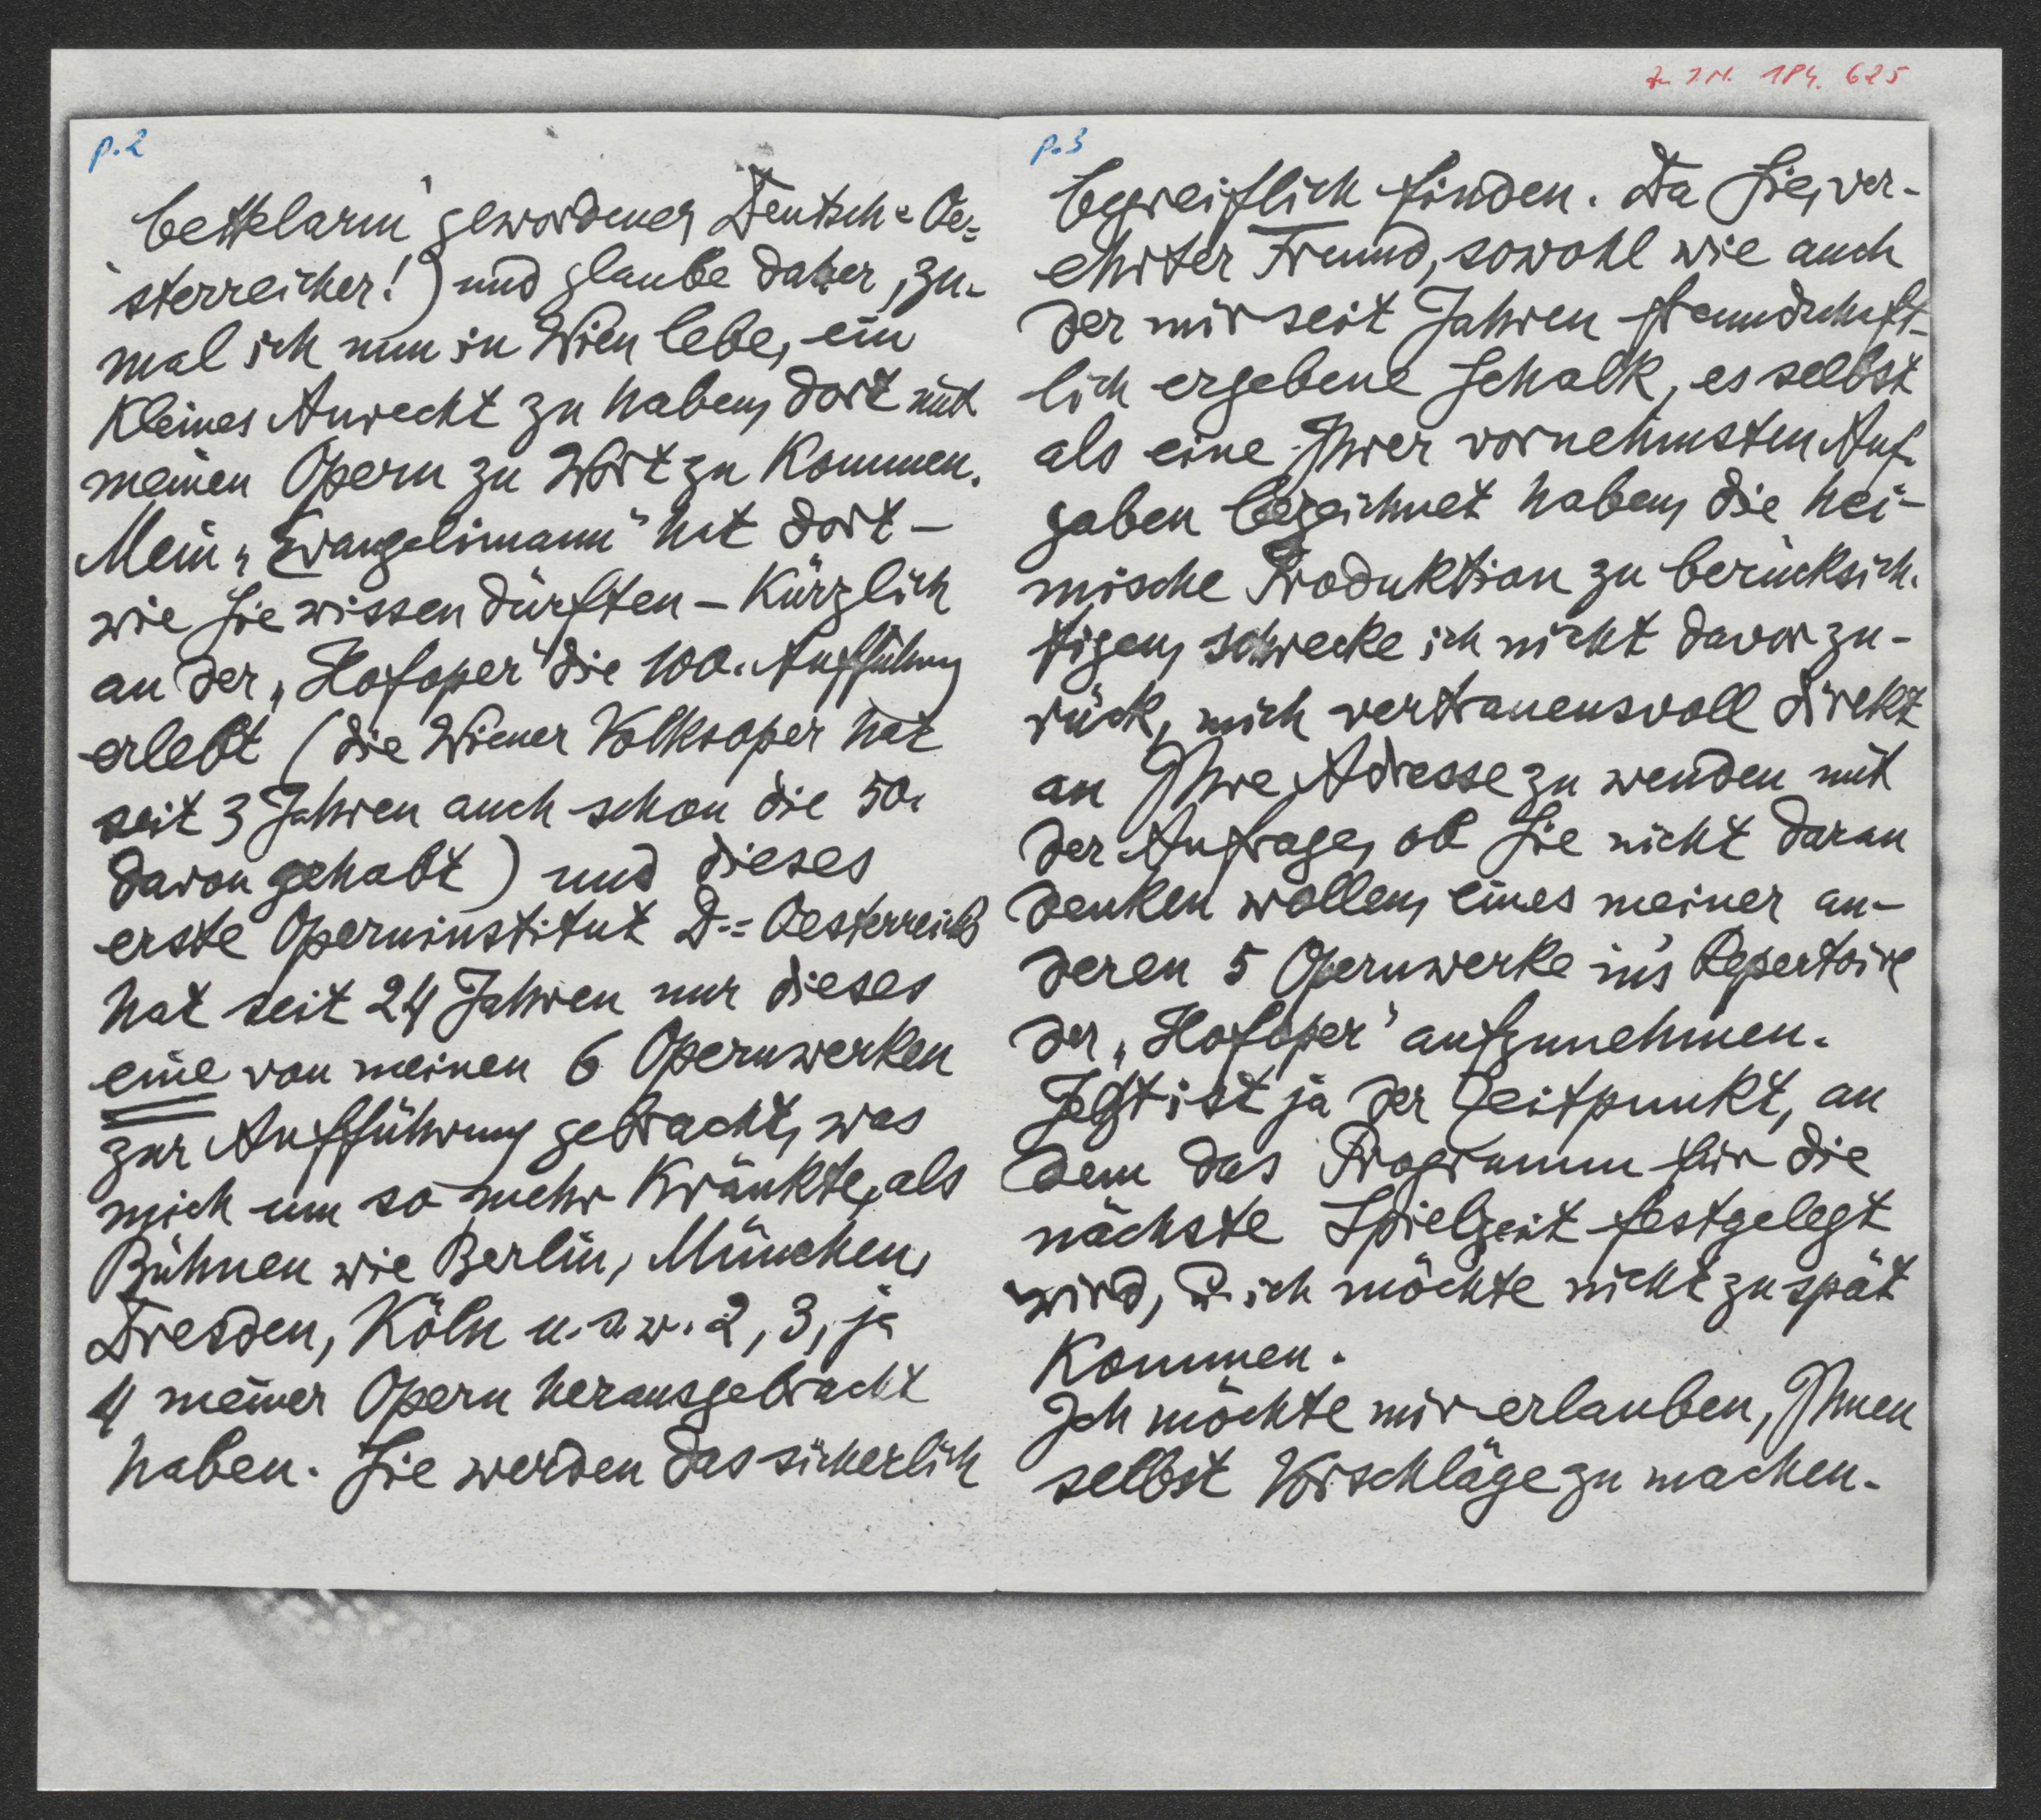 Z. J.N. 184.625
p.2
bettelarm gewordener Deutsch=Oe=
sterreicher!) und glaube daher, zu-
mal ich nun in Wien lebe, ein
kleines Anrecht zu haben, dort mit
meinen Opern zu Wort zu kommen.
Mein „Evangelimann" hat dort –
wie Sie wissen dürften – kürzlich
an der „Hofoper" die 100. Aufführung
erlebt (die Wiener Volksoper hat
seit 3 Jahren auch schon die 50.
davon gehabt) und dieses
erste Operninstitut D.=Oesterreichs
hat seit 24 Jahren nur dieses
eine von meinen 6 Opernwerken
zur Aufführung gebracht, was
mich um so mehr kränkte, als
Bühnen wie Berlin, München,
Dresden, Köln u.s.w. 2, 3, ja
4 meiner Opern herausgebracht
haben. Sie werden das sicherlich
p.3
begreiflich finden. Da Sie, ver-
ehrter Freund, sowohl wie auch
der mir seit Jahren freundschaft-
lich ergebene Schalk, es selbst
als eine Ihrer vornehmsten Auf-
gaben bezeichnet haben, die hei-
mische Produktion zu berücksich-
tigen, schrecke ich nicht davor zu-
rück, mich vertrauensvoll direkt
an Ihre Adresse zu wenden mit
der Anfrage, ob Sie nicht daran
denken wollen, eines meiner an-
deren 5 Opernwerke in's Repertoire
der „Hofoper" aufzunehmen.
Jetzt ist ja der Zeitpunkt, an
dem das Programm für die
nächste Spielzeit festgelegt
wird, u. ich möchte nicht zu spät
kommen.
Ich möchte mir erlauben, Ihnen
selbst Vorschläge zu machen.